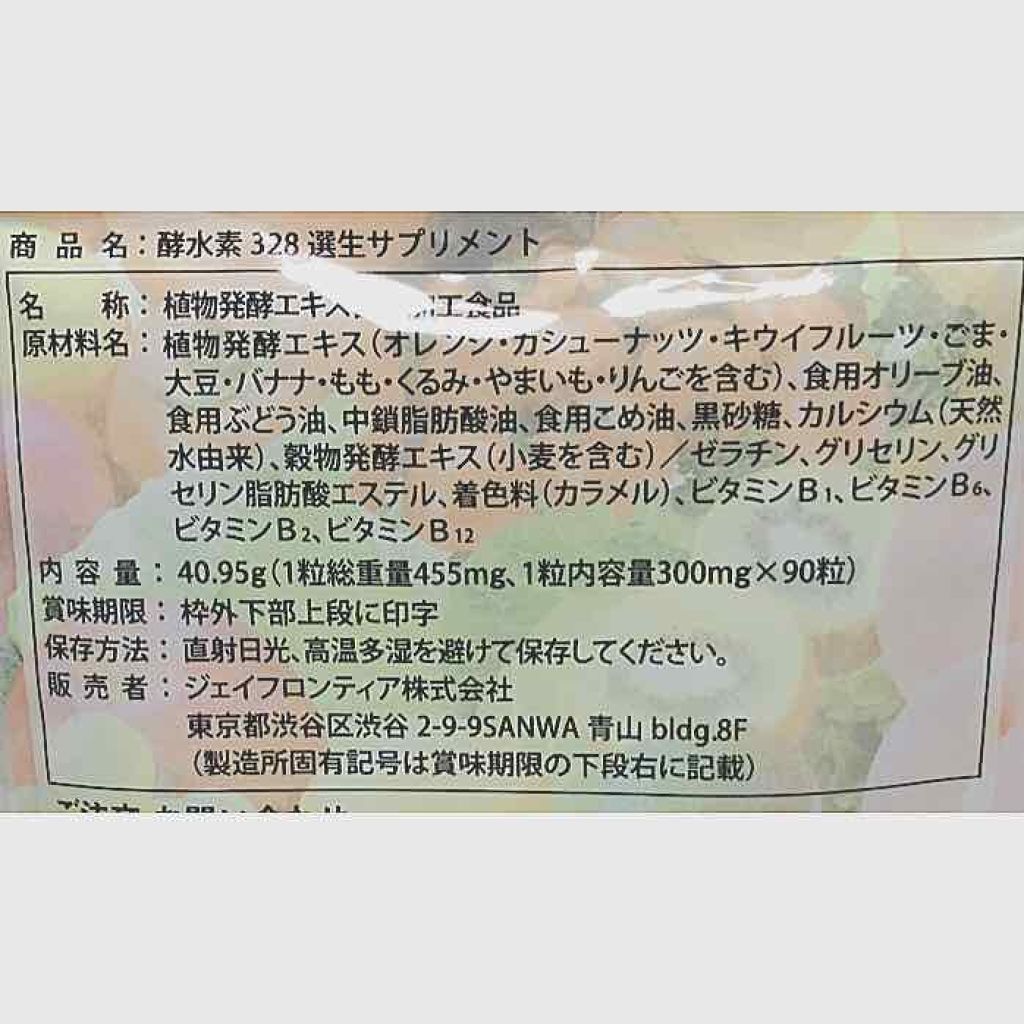 商品名：酵水素 328 選生サプリメント
名　　称：植物発酵エキス 加工食品
原材料名：植物発酵エキス（オレンジ・カシューナッツ・キウイフルーツ・ごま・
大豆・バナナ・もも・くるみ・やまいも・りんごを含む）、食用オリーブ油、
食用ぶどう油、中鎖脂肪酸油、食用こめ油、黒砂糖、カルシウム（天然
水由来）、穀物発酵エキス（小麦を含む）／ゼラチン、グリセリン、グリ
セリン脂肪酸エステル、着色料（カラメル）、ビタミンB1、ビタミンB6、
ビタミンB2、ビタミンB12
内容量：40.95g（1粒総重量455mg、1粒内容量300mg×90粒）
賞味期限：枠外下部上段に印字
保存方法：直射日光、高温多湿を避けて保存してください。
販売者：ジェイフロンティア株式会社
東京都渋谷区渋谷 2-9-9SANWA 青山 bldg.8F
（製造所固有記号は賞味期限の下段右に記載）